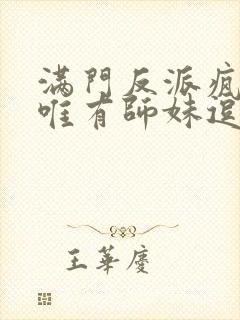 滿門反派瘋
唯有師妹逗
王華慶